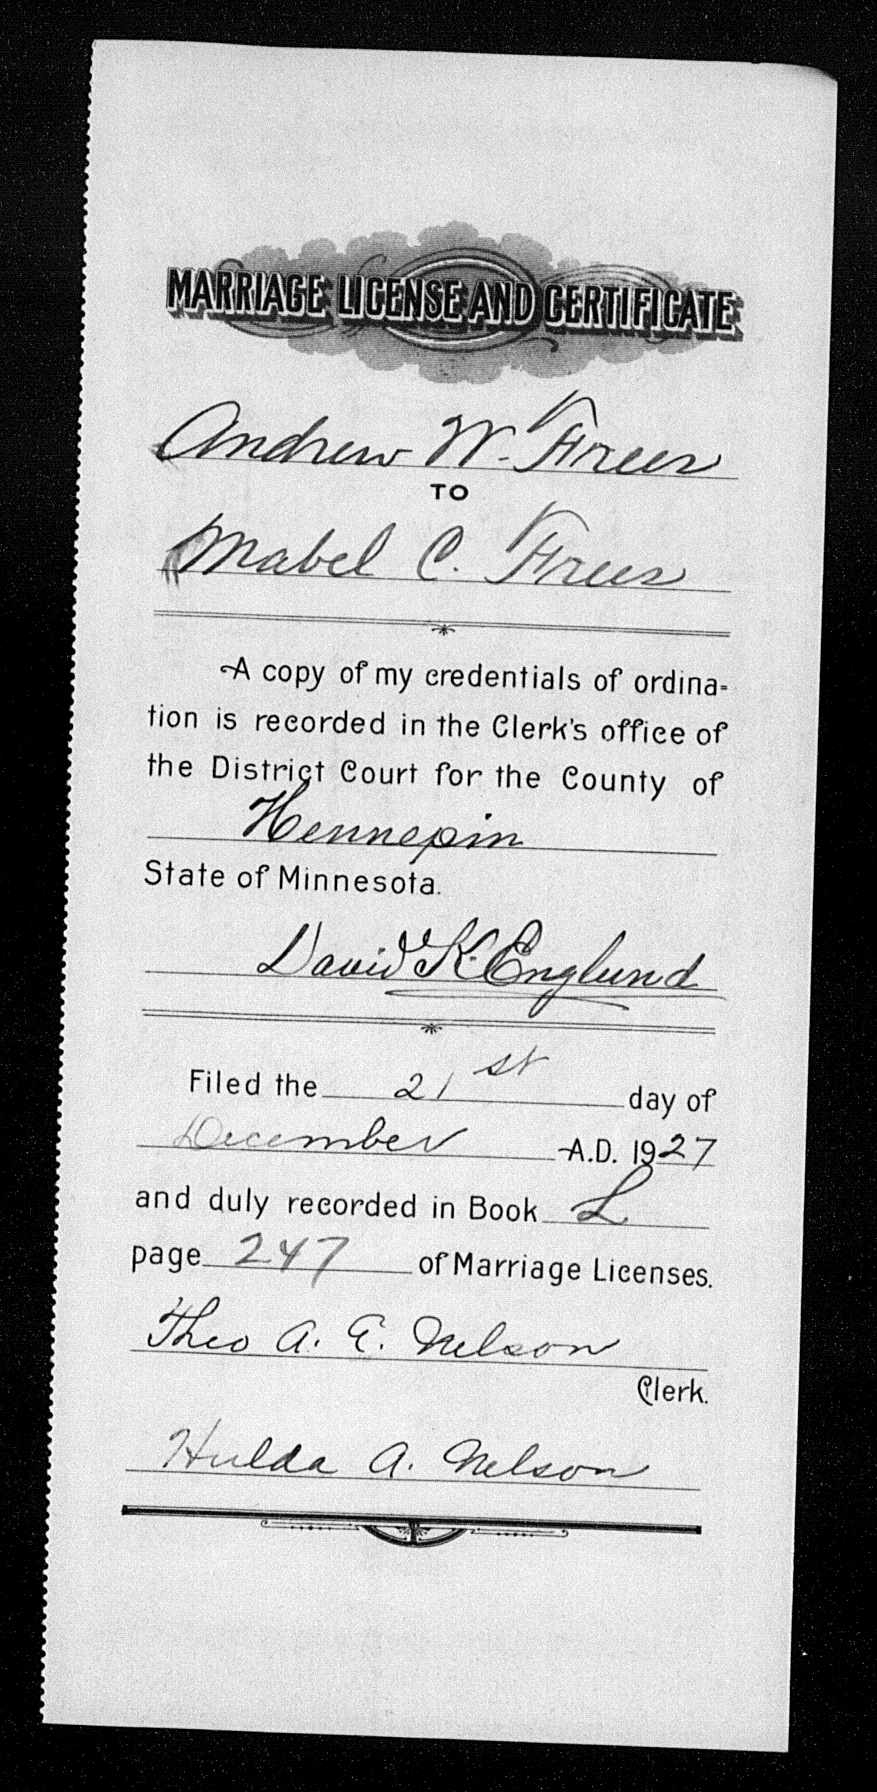 MARRIAGE LICENSE AND CERTIFICATE
Andrew W. Frees
TO
Mabel C. Frees
A copy of my credentials of ordina-
tion is recorded in the Clerk's office of
the District Court for the County of
Hennepin
State of Minnesota.
David K. Englund
Filed the 21st day of
December A.D. 1927
and duly recorded in Book L
page 247 of Marriage Licenses.
Theo A. E. Nelson
Clerk.
Hulda A. Nelson